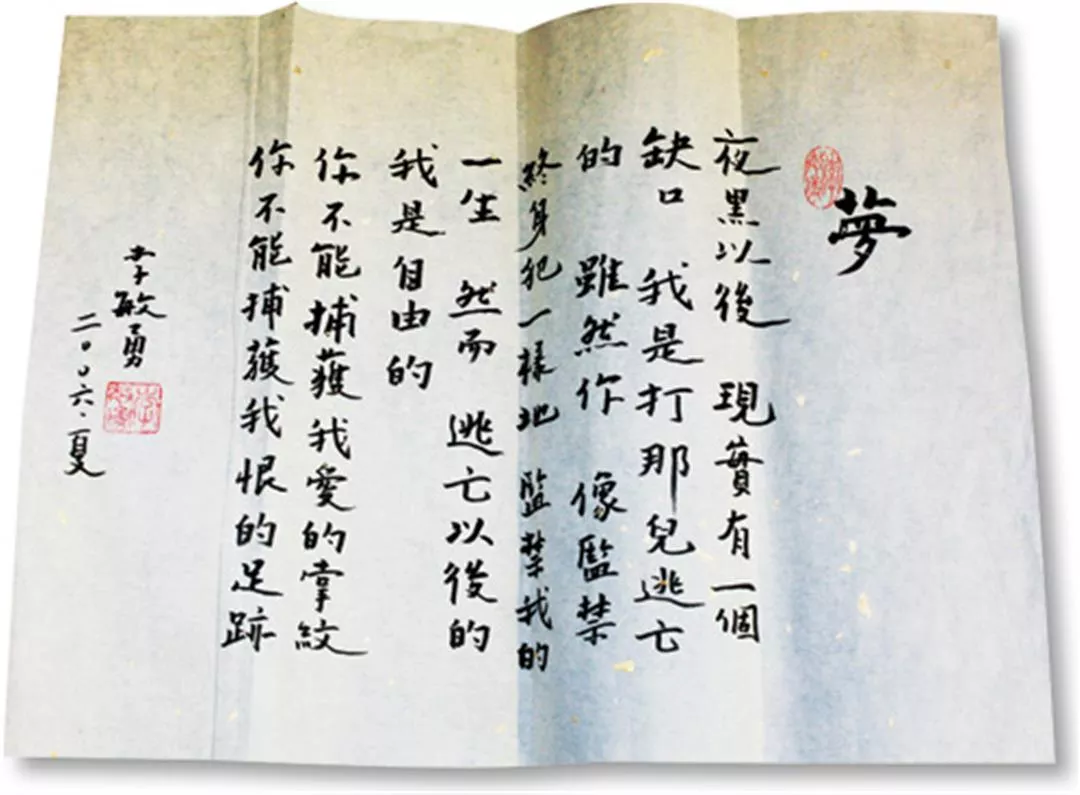 夢
夜黑以後　現實有一個
缺口　我是打那兒逃亡
的　雖然你　像監禁
終身犯一樣地　監禁我的
一生　然而　逃亡以後的
我是自由的
你不能捕獲我愛的掌紋
你不能捕獲我恨的足跡
李敏勇
二〇〇六·夏